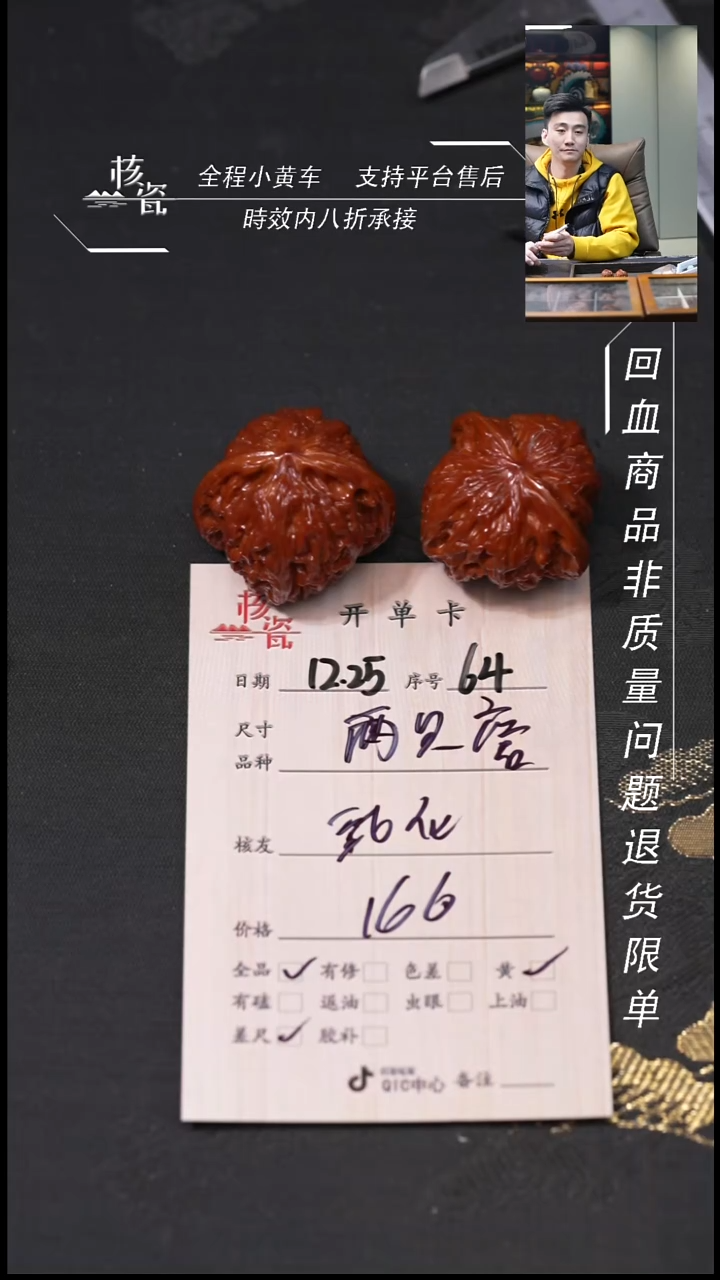 核瓷
全程小黄车 支持平台售后
時效内八折承接
回血商品非质量问题退货限单
核瓷
开单卡
日期 12.25 序号 64
尺寸
品种
核友
166
价格
全品 有修 色差 黄
有磕 返油 虫眼 上油
差尺 胶补
QIC中心 备注